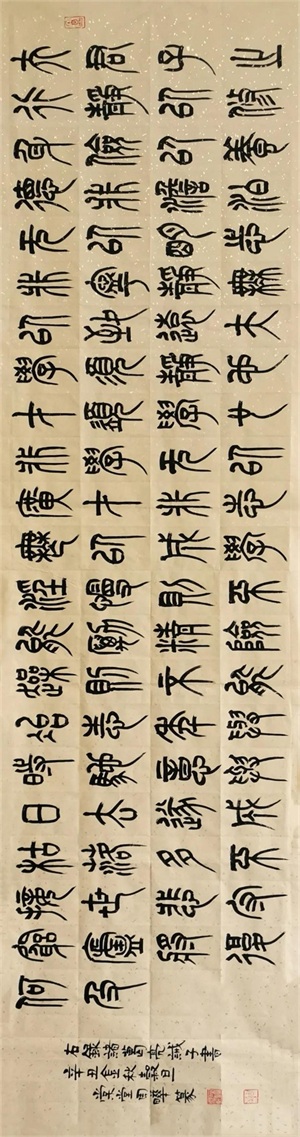 夫君子之
行靜以脩
身儉以養
德非澹怕
无以明志
非寧靜無
以致遠夫
學須靜也
才須學也
非學无以
廣才非志
無以成學
淫慢則不
能勵精險
躁則不能
治性年與
時馳意與
日去遂成
枯落多不
接世悲守
窮廬將復
何及
右錄諸葛亮誡子書
辛丑金秋穀旦
堂司曄篆